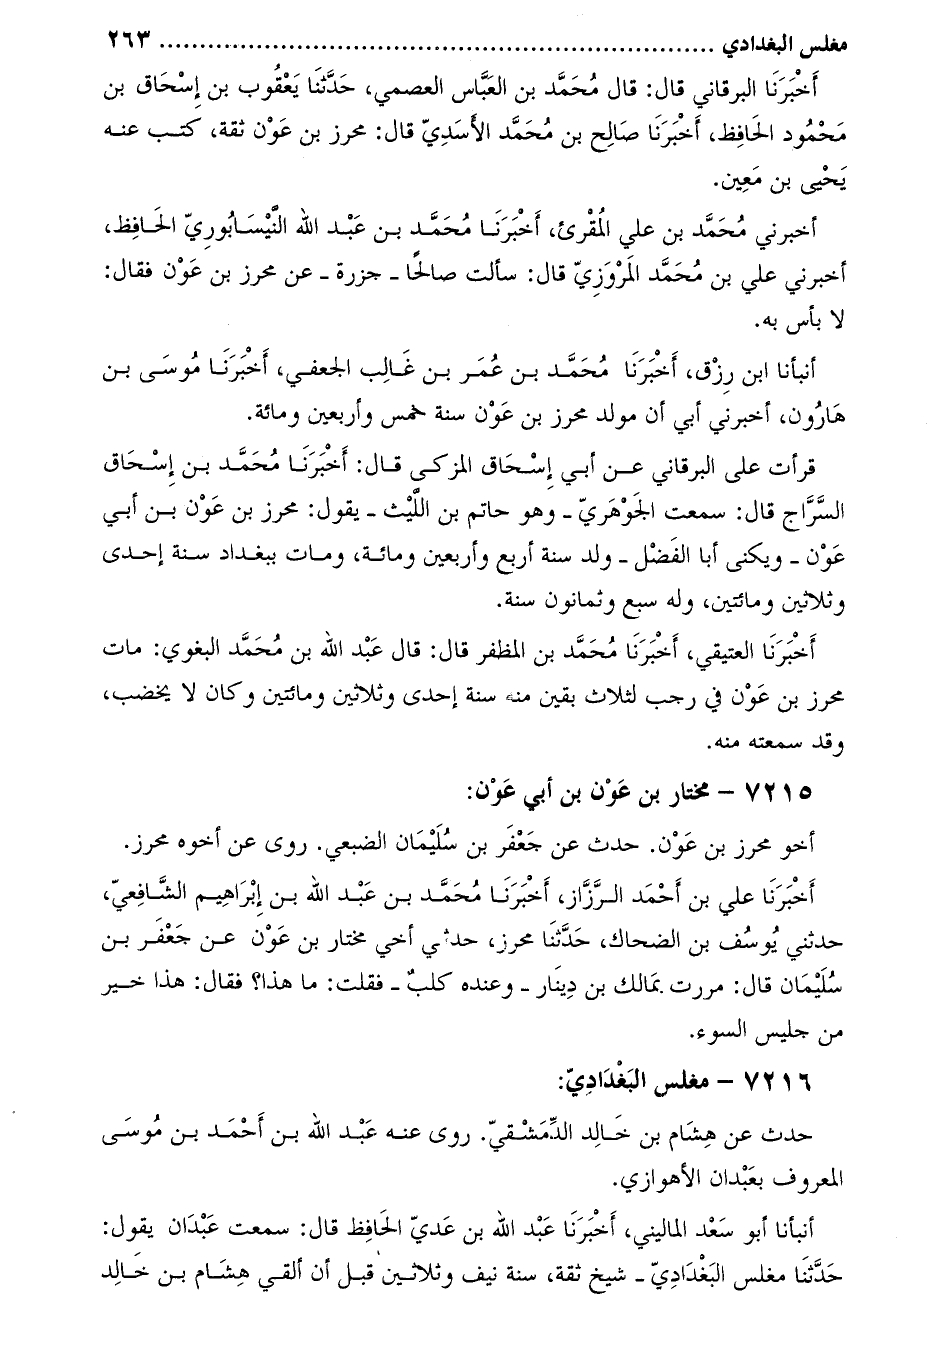 مغلس البغدادي ........................................................................ ٢٦٣
أَخْبَرَنَا البرقاني قال: قال مُحَمَّد بن العَبَّاس العصمي، حَدَّثَنَا يَعْقُوب بن إِسْحَاق بن
مَحْمُود الحَافِظ، أَخْبَرَنَا صَالِح بن مُحَمَّد الأَسَدِيّ قال: محرز بن عَوْن ثقة، كتب عنه
يَحْيَى بن مَعِين.
أخبرني مُحَمَّد بن علي المُقْرئ، أَخْبَرَنَا مُحَمَّد بن عَبْد الله النَّيْسَابُوريّ الحَافِظ،
أخبرني علي بن مُحَمَّد المَرْوَزِيّ قال: سألت صالحًا ـ جزرة ـ عن محرز بن عَوْن فقال:
لا بأس به.
أنبأنا ابن رِزْق، أَخْبَرَنَا مُحَمَّد بن عُمَر بن غَالِب الجعفي، أَخْبَرَنَا مُوسَى بن
هَارُون، أخبرني أبي أن مولد محرز بن عَوْن سنة خمس وأربعين ومائة.
قرأت على البرقاني عن أبي إِسْحَاق المزكى قال: أَخْبَرَنَا مُحَمَّد بن إِسْحَاق
السَّرَّاج قال: سمعت الجَوْهَريّ ـ وهو حاتم بن اللَّيْث ـ يقول: محرز بن عَوْن بن أبي
عَوْن ـ ويكنى أبا الفَضْل ـ ولد سنة أربع وأربعين ومائة، ومات ببغداد سنة إحدى
وثلاثين ومائتين، وله سبع وثمانون سنة.
أَخْبَرَنَا العتيقي، أَخْبَرَنَا مُحَمَّد بن المظفر قال: قال عَبْد الله بن مُحَمَّد البغوي: مات
محرز بن عَوْن في رجب لثلاث بقين منه سنة إحدى وثلاثين ومائتين وكان لا يخضب،
وقد سمعته منه.
٧٢١٥ – مختار بن عَوْن بن أبي عَوْن:
أخو محرز بن عَوْن. حدث عن جَعْفَر بن سُلَيْمَان الضبعي. روى عن أخوه محرز.
أَخْبَرَنَا علي بن أَحْمَد الرَّزَّاز، أَخْبَرَنَا مُحَمَّد بن عَبْد الله بن إِبْرَاهِيم الشَّافعِيّ،
حدثني يُوسُف بن الضحاك، حَدَّثَنَا محرز، حدثني أخي مختار بن عَوْن عن جَعْفَر بن
سُلَيْمَان قال: مررت بمالك بن دِينَار ـ وعنده كلبٌ ـ فقلت: ما هذا؟ فقال: هذا خير
من جليس السوء.
٧٢١٦ – مغلس البَغْدَادِيّ:
حدث عن هِشَام بن خَالِد الدِّمَشْقيّ. روى عنه عَبْد الله بن أَحْمَد بن مُوسَى
المعروف بعَبْدان الأهوازي.
أنبأنا أبو سَعْد الماليني، أَخْبَرَنَا عَبْد الله بن عَديّ الحَافِظ قال: سمعت عَبْدَان يقول:
حَدَّثَنَا مغلس البَغْدَادِيّ ـ شيخ ثقة، سنة نيف وثلاثين قبل أن ألقي هِشَام بن خَالِد